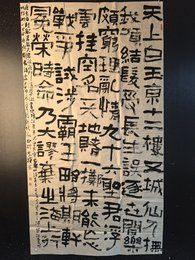 天上白玉京十二樓五城仙人撫
我頂結髮受長生誤逐世間樂
頗窮理亂情九十六聖君浮
雲挂空名天地賭一擲未能忘
戰爭試涉霸王略將期軒
冕榮時命乃大謬棄之海上行